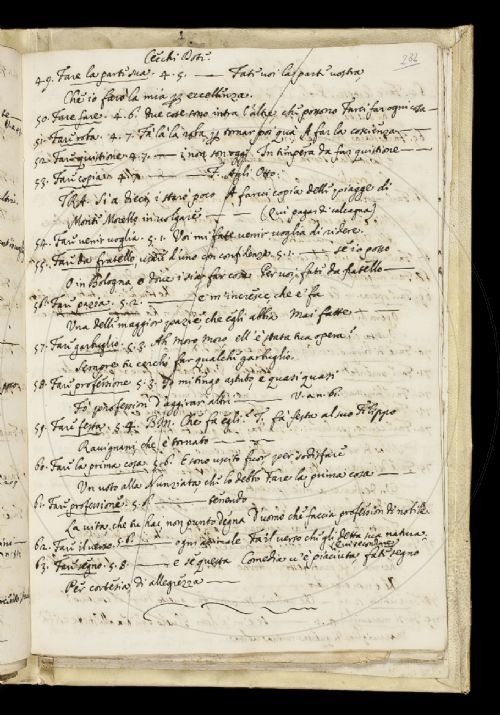 Cecchi Doti.
282
49. Fare la parti sua. 4. 5. — Fati voi la parti vostra,
Che io farò la mia per eccellenza.
50. Fare fare. 4. 6. due cose sono intra l'altre chi possono farci far ogni cosa —
51. Fare rota. 4. 7. Fa la la rota per tornar poi quà. A far la coscienza —
52. Fare quistione 4. 7. — i non son oggi In tempera da far quistione —
53. Fare copia 4. — F. Agli Otto.
TRA. Si a dieci, i starò poco A farvi copia delli piagge di
Monti Morello in volgare — (Qui pagar di calcagna)
54. Fare venir voglia. 5. 1. Voi mi fatt venir voglia di ridere.
55. Fare da fratello 5. 1. — se io posso
O in Bologna o dove i sia far cosa Per voi, fati da fratello —
56. Fare pazia. 5. 2. — e m'incresce, che e' fa
Una delli maggior pazzie che egli abbia Mai fatte —
57. Fare garbuglio. 5. 3. Ah Moro Moro ell' è stata tua opera!
Sempre tu cerchi far qualchi garbuglio.
58. Fare professione. 5. 3. Io mi tingo astuto e quasi quasi
Fo professioni d'aggirar altri — V. a n. 61.
59. Fare festa. 5. 4. BON. Che fa egli? T. fa festa al suo Filippo
Ravignani che è tornato —
60. Fare la prima cosa. 5. 6. E sono uscito fuor per sodisfare
Un voto alla Nunziata chi lo debbo Fare la prima cosa —
61. Fare professione. 5. 6. — tenendo
La vita che tu hai, non punto degna D'uomo chi faccia professioni di nobile
62. Fare il verso. 5. 6. — ogni animale Fa il verso chi gli detta sua natura.
63. Fare segno. 5. 8. — e se questa Comedia v'è piaciuta, fati segno
Per cortesia di allegrezza —